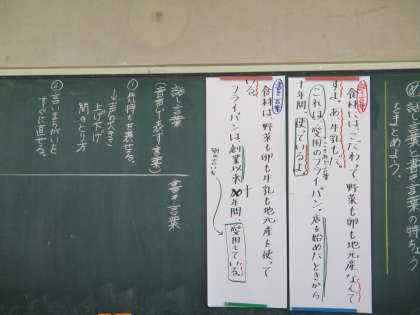 話し言葉と書き言葉の特ちょう
をまとめよう。
話し言葉
食材には、こだわって、野菜も卵も地元産なんで
すよ。あ、牛乳も。
これは、愛用のフライパン。店を始めたときから
十年間、使っているよ。
書き言葉
食材は、野菜も卵も牛乳も地元産を使って
いる。
フライパンは、創業以来
十年間、愛用している。
話し言葉
(音声で表す言葉)
①気持ちを表せる。
→声の大きさ
上げ下げ
間のとり方
②言いまちがいを
すぐに直せる。
書き言葉